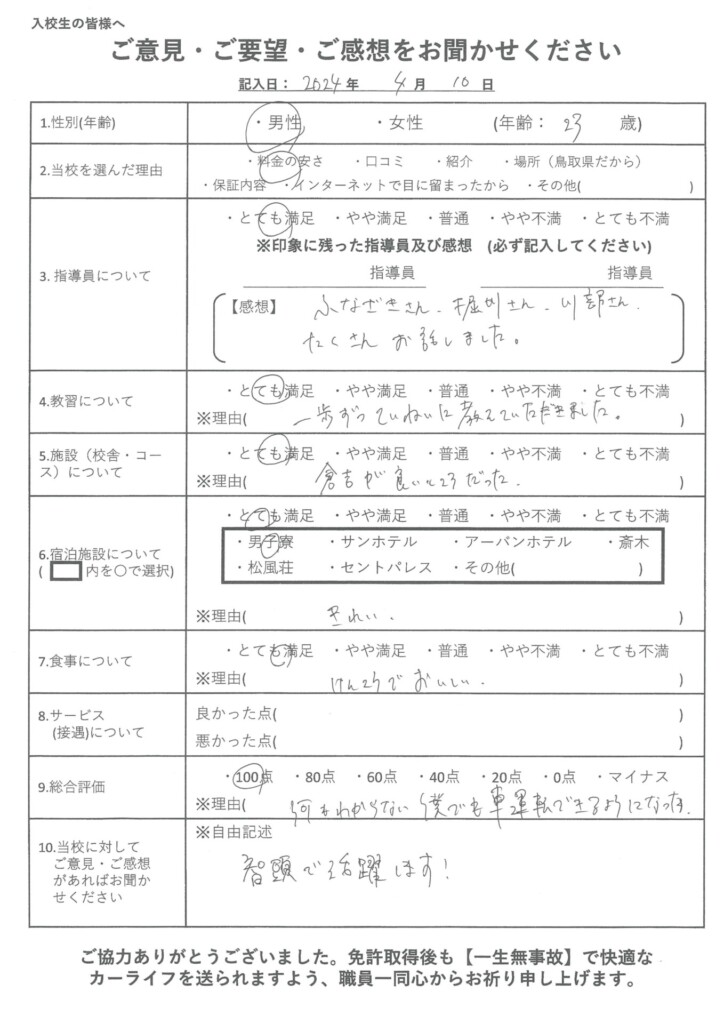 入校生の皆様へ
ご意見・ご要望・ご感想をお聞かせください
記入日： 2024 年 4 月 10 日
1.性別(年齢) ・男性 ・女性 (年齢： 23 歳)
2.当校を選んだ理由
・料金の安さ ・口コミ ・紹介 ・場所（鳥取県だから）
・保証内容 ・インターネットで目に留まったから ・その他( )
3. 指導員について
・とても満足 ・やや満足 ・普通 ・やや不満 ・とても不満
※印象に残った指導員及び感想 (必ず記入してください)
指導員 指導員
【感想】 ふなざきさん、堀川さん、川部さん、
たくさんお話しました。
4.教習について
・とても満足 ・やや満足 ・普通 ・やや不満 ・とても不満
※理由( 一歩ずつていねいに教えていただきました。 )
5.施設（校舎・コース）について
・とても満足 ・やや満足 ・普通 ・やや不満 ・とても不満
※理由( 倉吉が良いところだった。 )
6.宿泊施設について
( 内を〇で選択)
・とても満足 ・やや満足 ・普通 ・やや不満 ・とても不満
・男子寮 ・サンホテル ・アーバンホテル ・斎木
・松風荘 ・セントパレス ・その他( )
※理由( きれい. )
7.食事について
・とても満足 ・やや満足 ・普通 ・やや不満 ・とても不満
※理由( けんこうでおいしい. )
8.サービス
(接遇)について
良かった点( )
悪かった点( )
9.総合評価
・100点 ・80点 ・60点 ・40点 ・20点 ・0点 ・マイナス
※理由( 何もわからない僕でも車運転できるようになった.
10.当校に対して
ご意見・ご感想
があればお聞か
せください
※自由記述
智頭で活躍します！
ご協力ありがとうございました。免許取得後も【一生無事故】で快適な
カーライフを送られますよう、職員一同心からお祈り申し上げます。